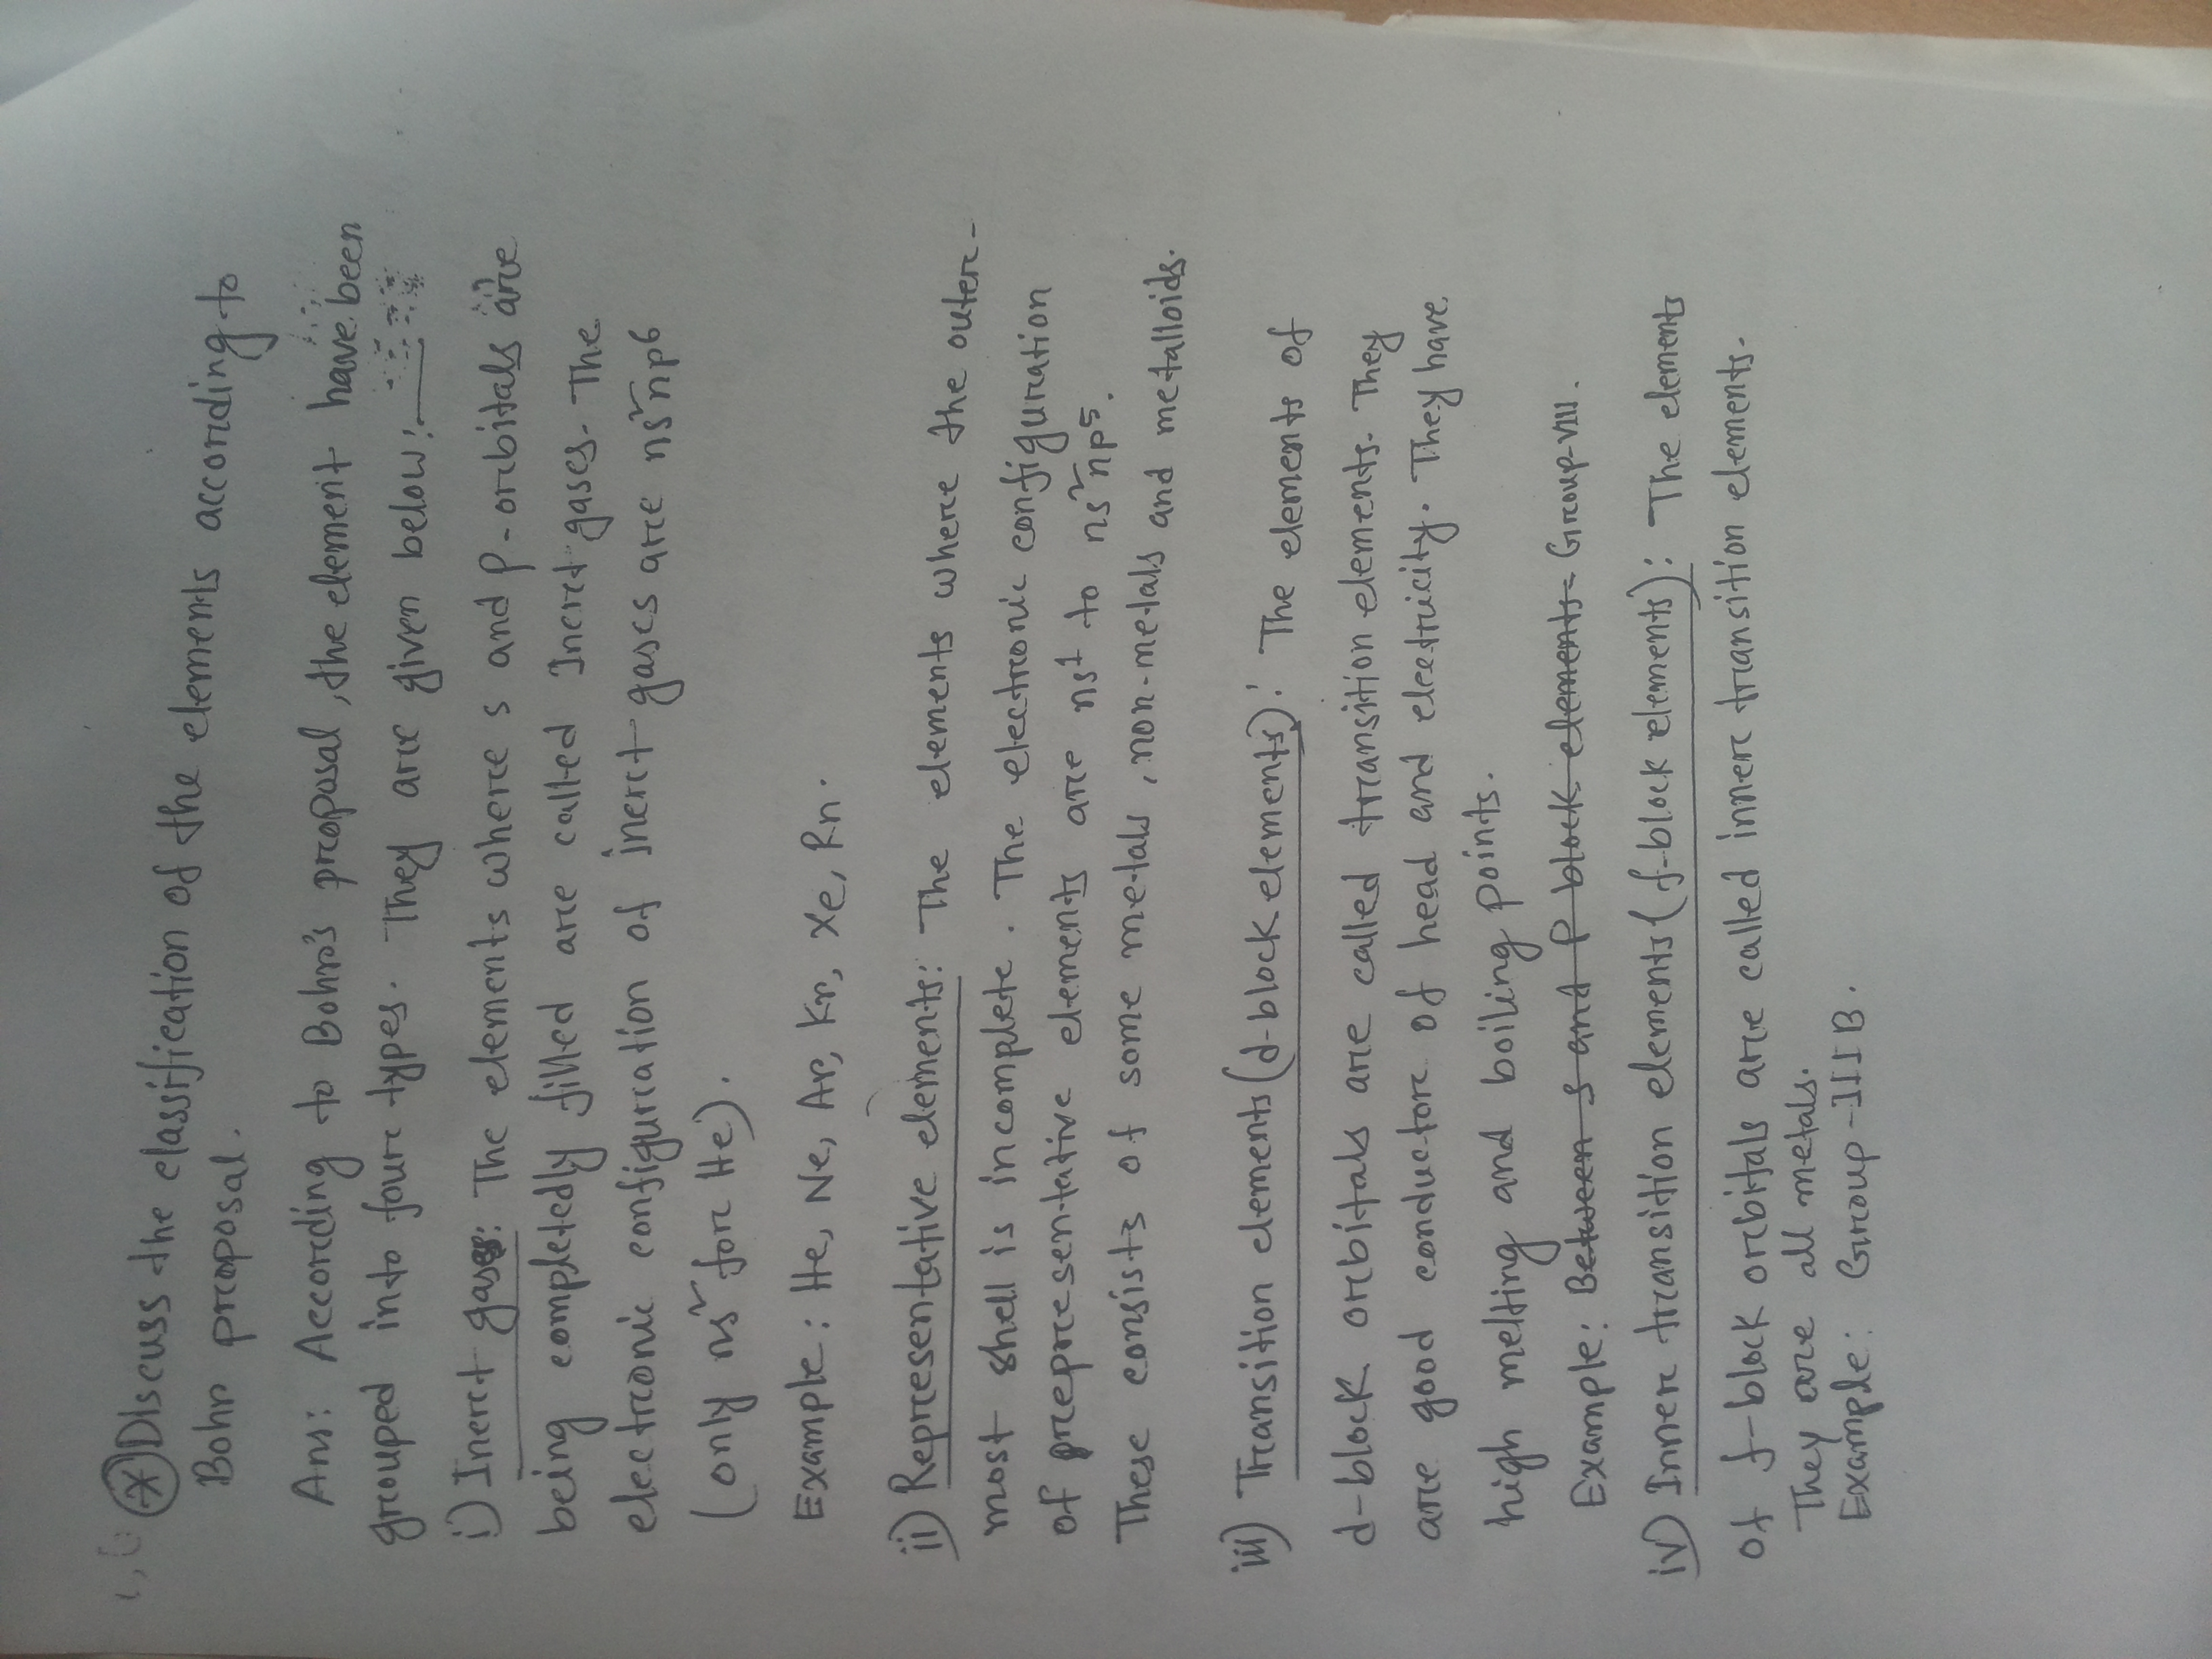 * Discuss the classification of the elements according to
Bohr proposal.
Ans: According to Bohr's proposal, the element have been
grouped into four types. They are given below:—
i) Inert gases: The elements where s and p-orbitals are
being completedly filled are called Inert gases. The
electronic configuration of inert gases are ns²np⁶
(only ns² for He).
Example: He, Ne, Ar, Kr, Xe, Rn.
ii) Representative elements: The elements where the outer-
most shell is incomplete. The electronic configuration
of prepresentative elements are ns¹ to ns²np⁵.
These consists of some metals, non-metals and metalloids.
iii) Transition elements (d-block elements): The elements of
d-block orbitals are called transition elements. They
are good conductor of head and electricity. They have
high melting and boiling points.
Example: Between s and P block elements Group-VIII.
iv) Inner transition elements (f-block elements): The elements
of f-block orbitals are called inner transition elements.
They are all metals.
Example: Group-III B.